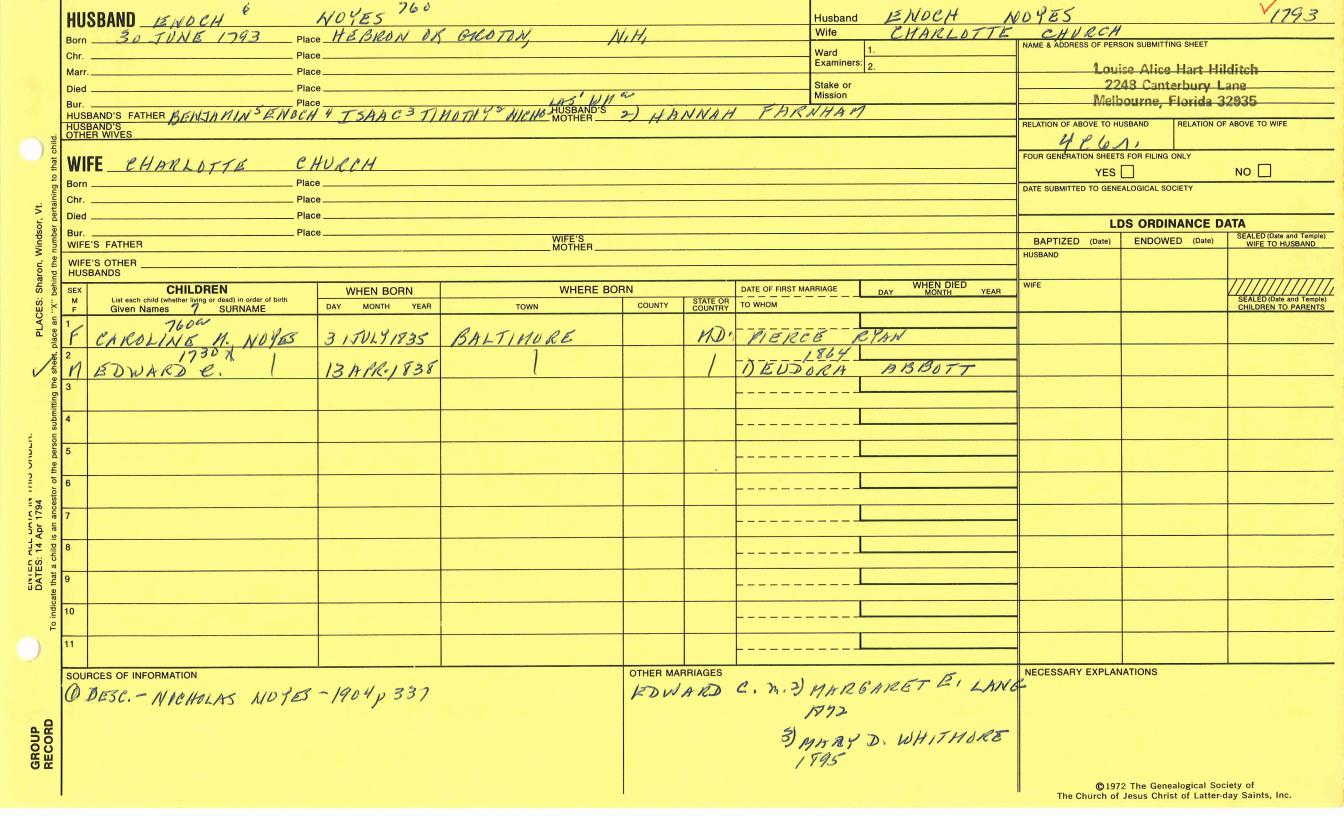 HUSBAND ENOCH 6 NOYES 760
Born 30 JUNE 1793 Place HEBRON OR GROTON, N.H,
Chr. Place
Marr. Place
Died Place
Bur. Place
HUSBAND'S FATHER BENJAMIN 5 ENOCH 4 ISAAC 3 TIMOTHY 2 NICHOLAS' WM a HUSBAND'S MOTHER 2) HANNAH FARNHAM
HUSBAND'S OTHER WIVES
Husband ENOCH NOYES 1793
Wife CHARLOTTE CHURCH
Ward Examiners: 1.
2.
Stake or Mission
NAME & ADDRESS OF PERSON SUBMITTING SHEET
Louise Alice Hart Hilditch
2248 Canterbury Lane
Melbourne, Florida 32935
RELATION OF ABOVE TO HUSBAND RELATION OF ABOVE TO WIFE
FOUR GENERATION SHEETS FOR FILING ONLY
YES NO
DATE SUBMITTED TO GENEALOGICAL SOCIETY
WIFE CHARLOTTE CHURCH
Born Place
Chr. Place
Died Place
Bur. Place
WIFE'S FATHER WIFE'S MOTHER
WIFE'S OTHER HUSBANDS
LDS ORDINANCE DATA
BAPTIZED (Date) ENDOWED (Date) SEALED (Date and Temple) WIFE TO HUSBAND
HUSBAND
WIFE
SEALED (Date and Temple) CHILDREN TO PARENTS
SEX M F
CHILDREN
List each child (whether living or dead) in order of birth
Given Names 7 SURNAME
WHEN BORN
DAY MONTH YEAR
WHERE BORN
TOWN COUNTY STATE OR COUNTRY
DATE OF FIRST MARRIAGE
TO WHOM
WHEN DIED
DAY MONTH YEAR
760a
1 F CAROLINE M. NOYES 31 JULY 1835 BALTIMORE MD. PIERCE RYAN
1730 1864
2 M EDWARD C. 13 APR. 1838 1) EUDORA ABBOTT
3
4
5
6
7
8
9
10
11
SOURCES OF INFORMATION
① DESC. - NICHOLAS NOYES - 1904 p 337
OTHER MARRIAGES
EDWARD C. m. 2) MARGARET E. LANG
1872
3) MARY D. WHITMORE
1895
NECESSARY EXPLANATIONS
©1972 The Genealogical Society of
The Church of Jesus Christ of Latter-day Saints, Inc.
PLACES: Sharon, Windsor, Vt.
To indicate that a child is an ancestor of the person submitting the sheet, place an "X" behind the number pertaining to that child.
ENTER ALL DATA IN THIS ORDER:
DATES: 14 Apr 1794
GROUP
RECORD